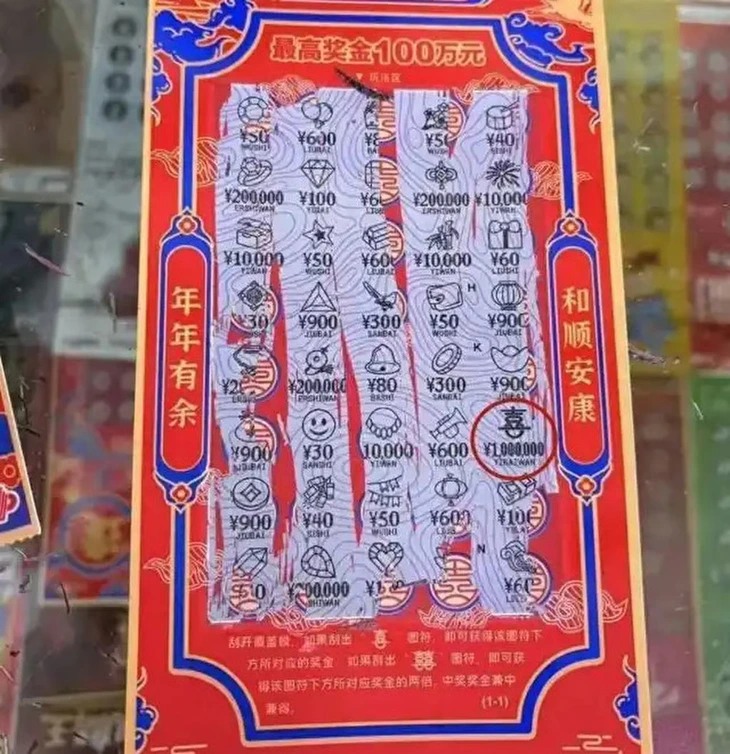 最高奖金100万元
▼ 玩法区
¥50 ¥600 ¥50 ¥40
WUSHI LIUBAI WUSHI SISHI
¥200,000 ¥100 ¥200,000 ¥10,000
ERSHIWAN YIBAI ERSHIWAN YIWAN
¥10,000 ¥50 ¥600 ¥10,000 ¥60
YIWAN WUSHI LIUBAI YIWAN LIUSHI
H
¥30 ¥900 ¥300 ¥50 ¥900
SANSHI JIUBAI SANBAI WUSHI JIUBAI
K
¥200,000 ¥80 ¥300 ¥900
ERSHIWAN BASHI SANBAI JIUBAI
喜
¥900 ¥30 10,000 ¥600 ¥1,000,000
JIUBAI SANSHI YIWAN LIUBAI YIBAIWAN
¥900 ¥40 ¥50 ¥600
JIUBAI SISHI WUSHI
N
年年有余
和顺安康
刮开覆盖膜,如果刮出 喜 图符,即可获得该图符下
方所对应的奖金,如果刮出 囍 图符,即可获
得该图符下方所对应奖金的两倍。中奖奖金兼中
兼得。
(1-1)